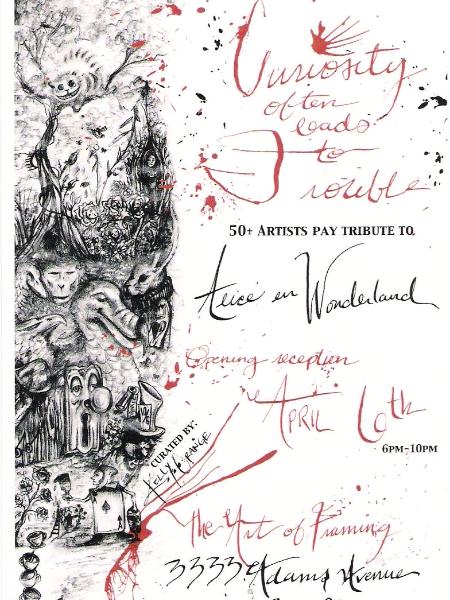 Curiosity
often
leads
to
Trouble
50+ ARTISTS PAY TRIBUTE TO
Alice in Wonderland
Opening reception
APRIL 10th
6PM-10PM
CURATED BY:
The Art of Framing
3333 Adams Avenue